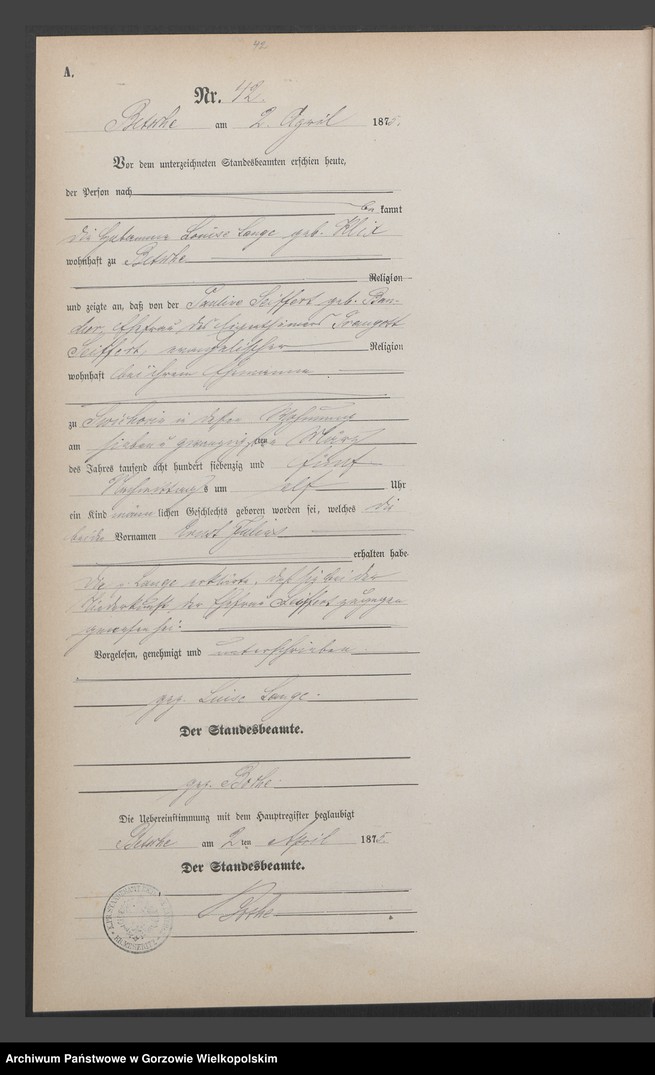 42
A.
Nr. 42.
Betsche am 2. April 1875.
Vor dem unterzeichneten Standesbeamten erschien heute,
der Person nach
be kannt
die Hebamme Louise Lange geb. Klix
wohnhaft zu Betsche
Religion
und zeigte an, daß von der Pauline Seiffert, geb.
Ehefrau des Eigenthümers
Seiffert, evangelischer Religion
wohnhaft bei ihrem Ehemanne
zu in dessen Wohnung
am sieben u zwanzigsten März
des Jahres tausend acht hundert siebenzig und fünf
Nachmittags um elf Uhr
ein Kind männlichen Geschlechts geboren worden sei, welches die
beiden Vornamen Ernst Julius
erhalten habe
Die Lange erklärte, daß sie bei der
Niederkunft der Ehefrau Seiffert zugegen
gewesen sei.
Vorgelesen, genehmigt und unterschrieben
gez. Luise Lange.
Der Standesbeamte.
gez. Bothe.
Die Uebereinstimmung mit dem Hauptregister beglaubigt
Betsche am 2ten April 1875.
Der Standesbeamte.
Bothe
Archiwum Państwowe w Gorzowie Wielkopolskim